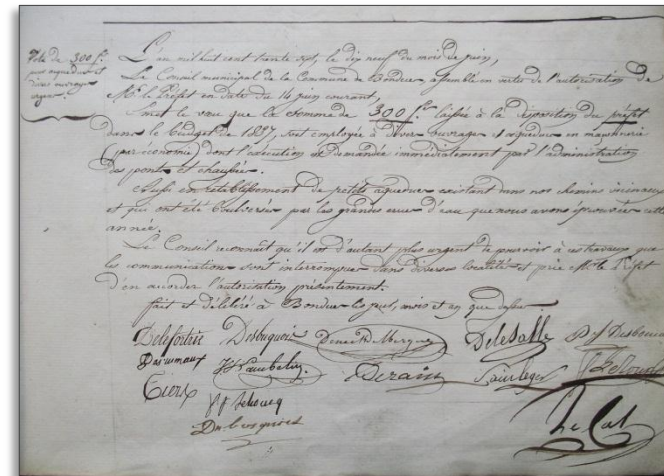 Vote de 300 f.
pour aqueducs et
divers ouvrages
urgens.
L'an mil huit cent trente sept, le dix neuf du mois de juin,
Le Conseil municipal de la Commune de Bondues assemblé en vertu de l'autorisation de
Mr. le Préfet en date du 14 juin courant,
Emet le vœu que la somme de 300 frs laissée à la disposition du préfet
dans le budget de 1837, soit employée à divers ouvrages et aqueducs en maçonnerie
(par économie) dont l'exécution est demandée immédiatement par l'administration
des ponts et chaussées.
Aussi en rétablissement de petits aqueducs existant dans nos chemins vicinaux
et qui ont été bouleversés par les grandes crues d'eau que nous avons éprouvées cette
année.
Le Conseil reconnait qu'il est d'autant plus urgent de pourvoir à ces travaux que
les communications sont interrompues dans diverses localités et prie Mr. le Préfet
d'en accorder l'autorisation présentement.
fait et délibéré à Bondues les jour, mois et an que dessus
Delefortrie Desbuquois Delesalle
Dasrumaux
Derain
Lecat